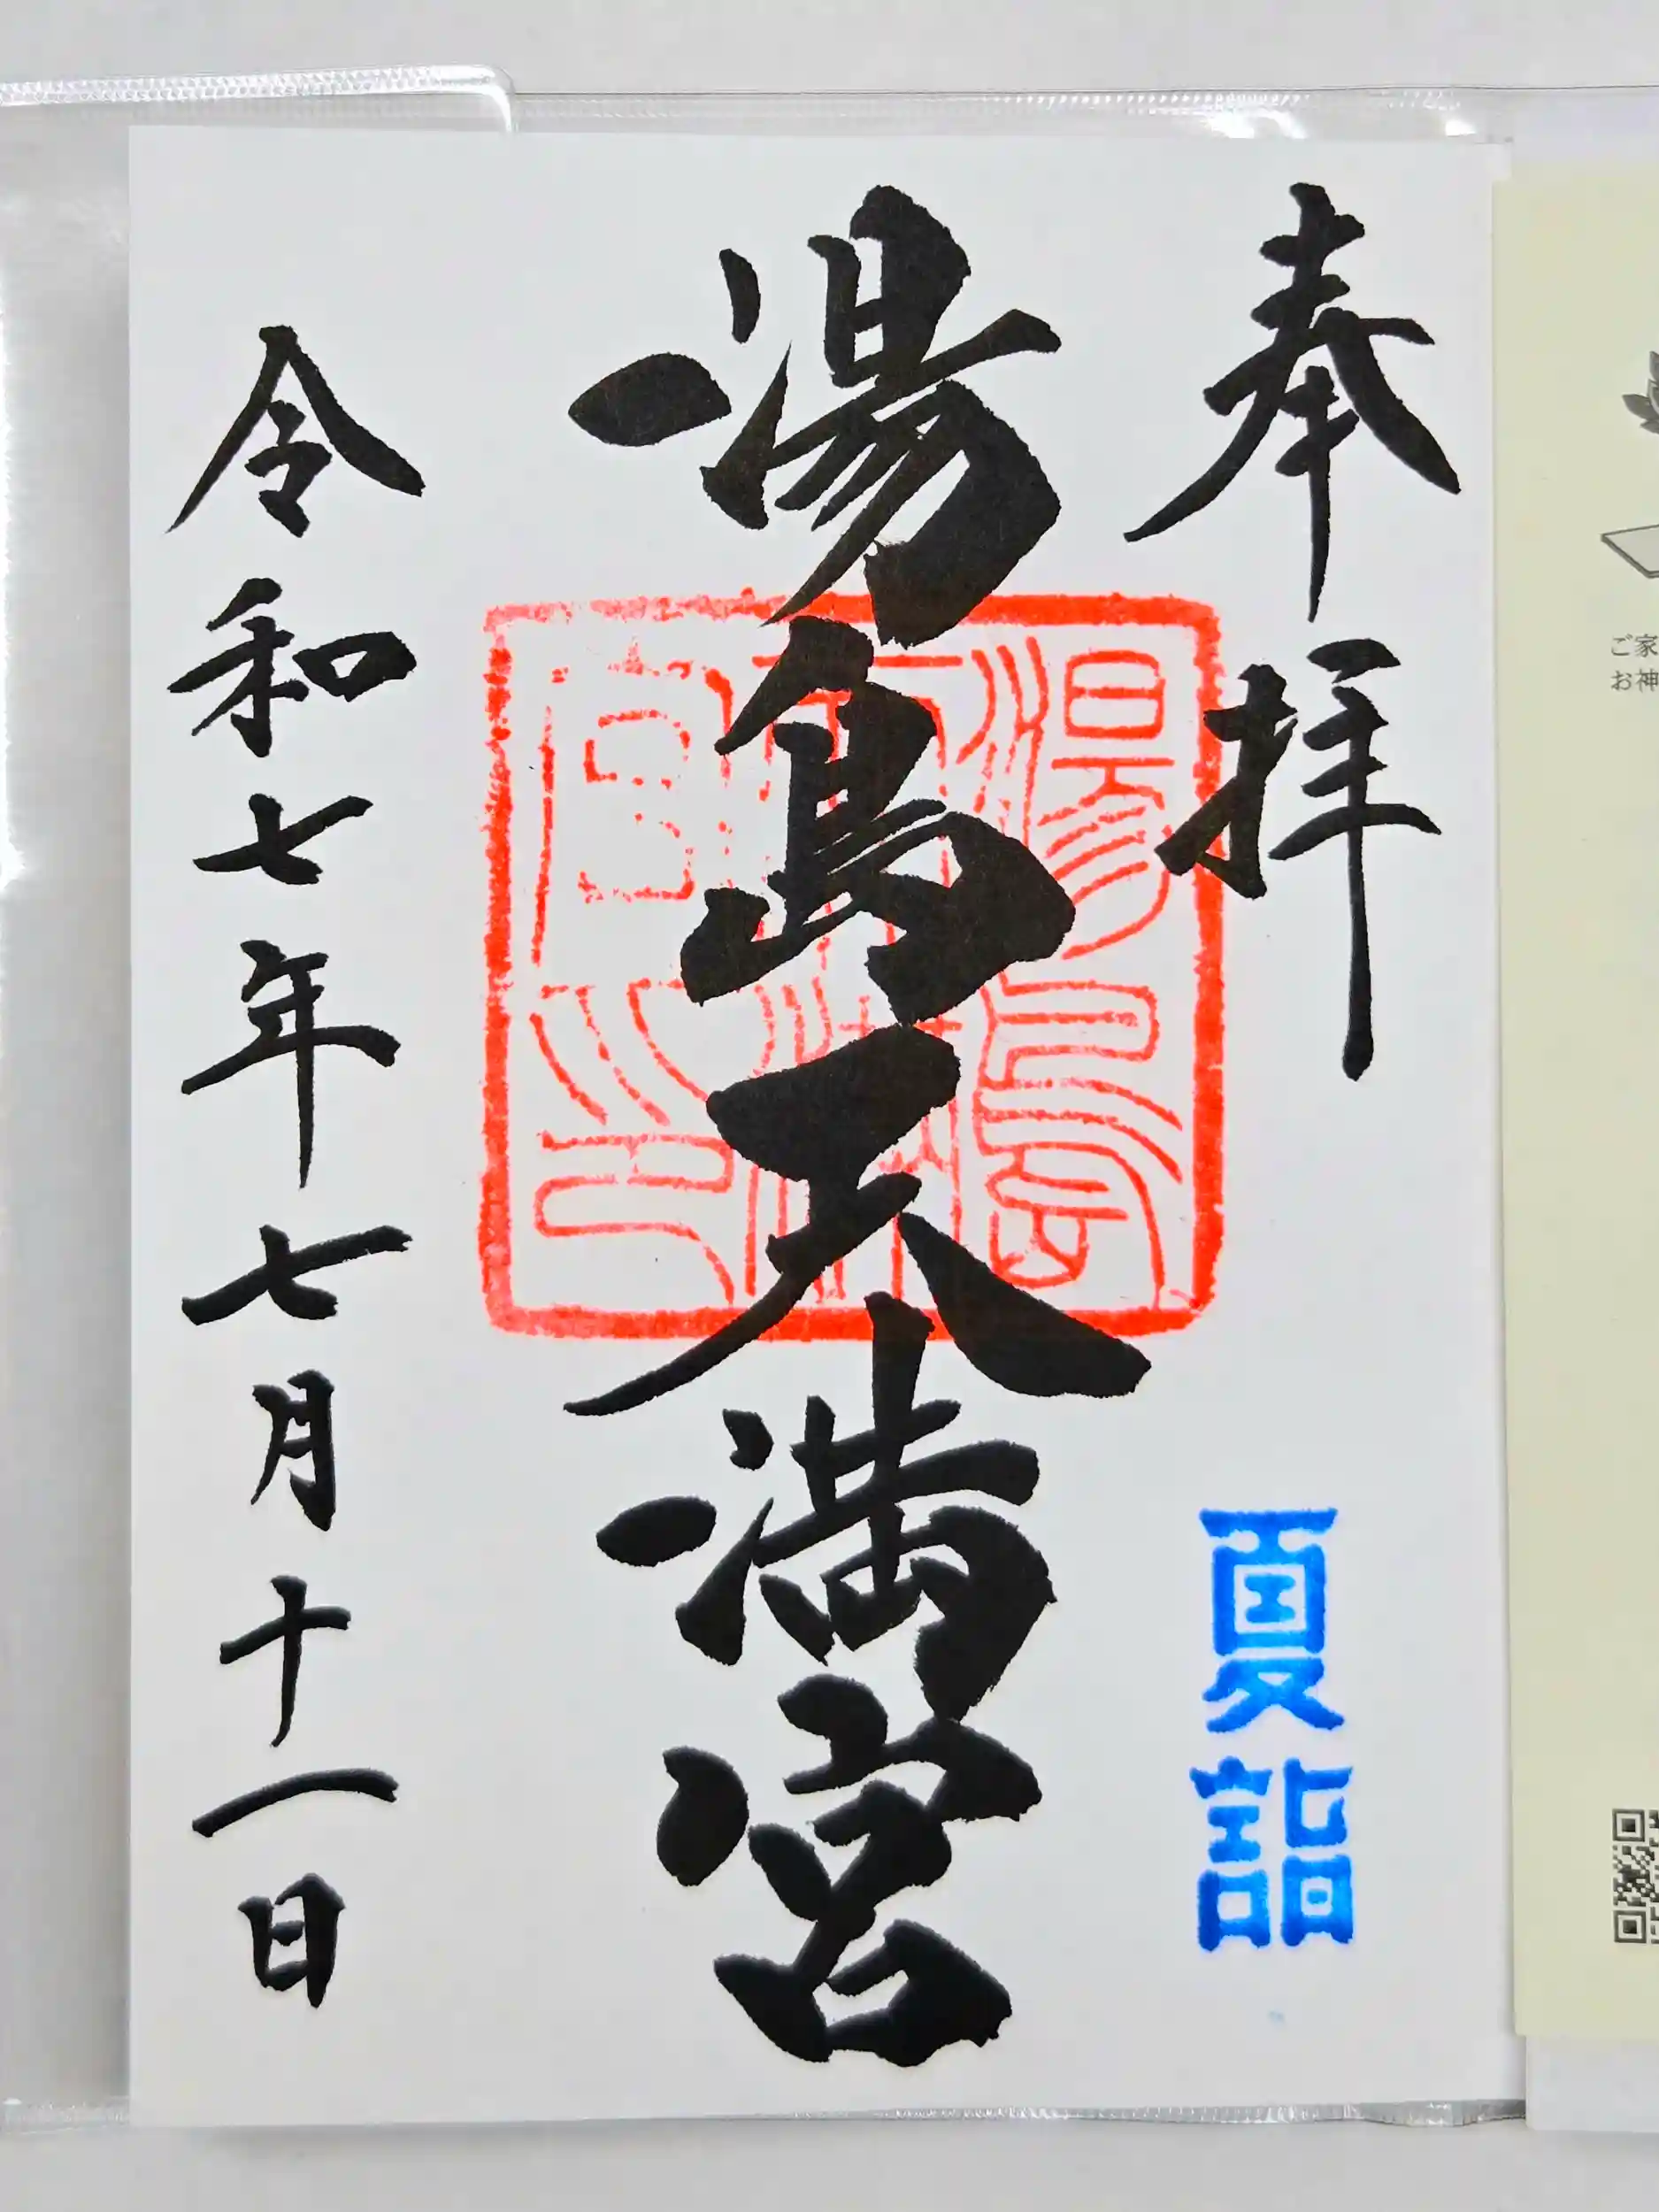 奉拝
夏詣
湯島天満宮
湯島天満宮之印
令和七年七月十一日
ご家
お神